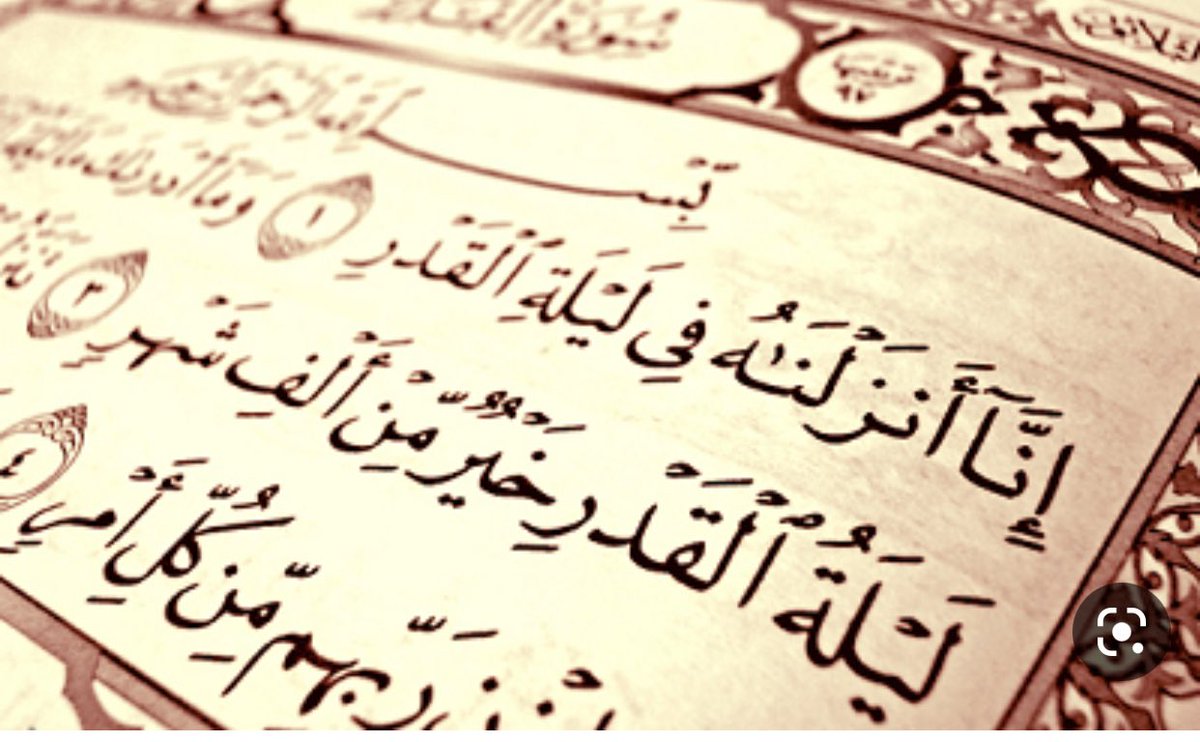 سُورَةُ القَدْرِ ترتيبها ٩٧
بِّسْمِ ٱللَّهِ ٱلرَّحْمَٰنِ ٱلرَّحِيمِ
إِنَّآ أَنزَلْنَٰهُ فِي لَيْلَةِ ٱلْقَدْرِ ١ وَمَآ أَدْرَىٰكَ مَا
لَيْلَةُ ٱلْقَدْرِ خَيْرٌ مِّنْ أَلْفِ شَهْرٍ ٣
رَبِّهِم مِّن كُلِّ أَمْرٍ ٤